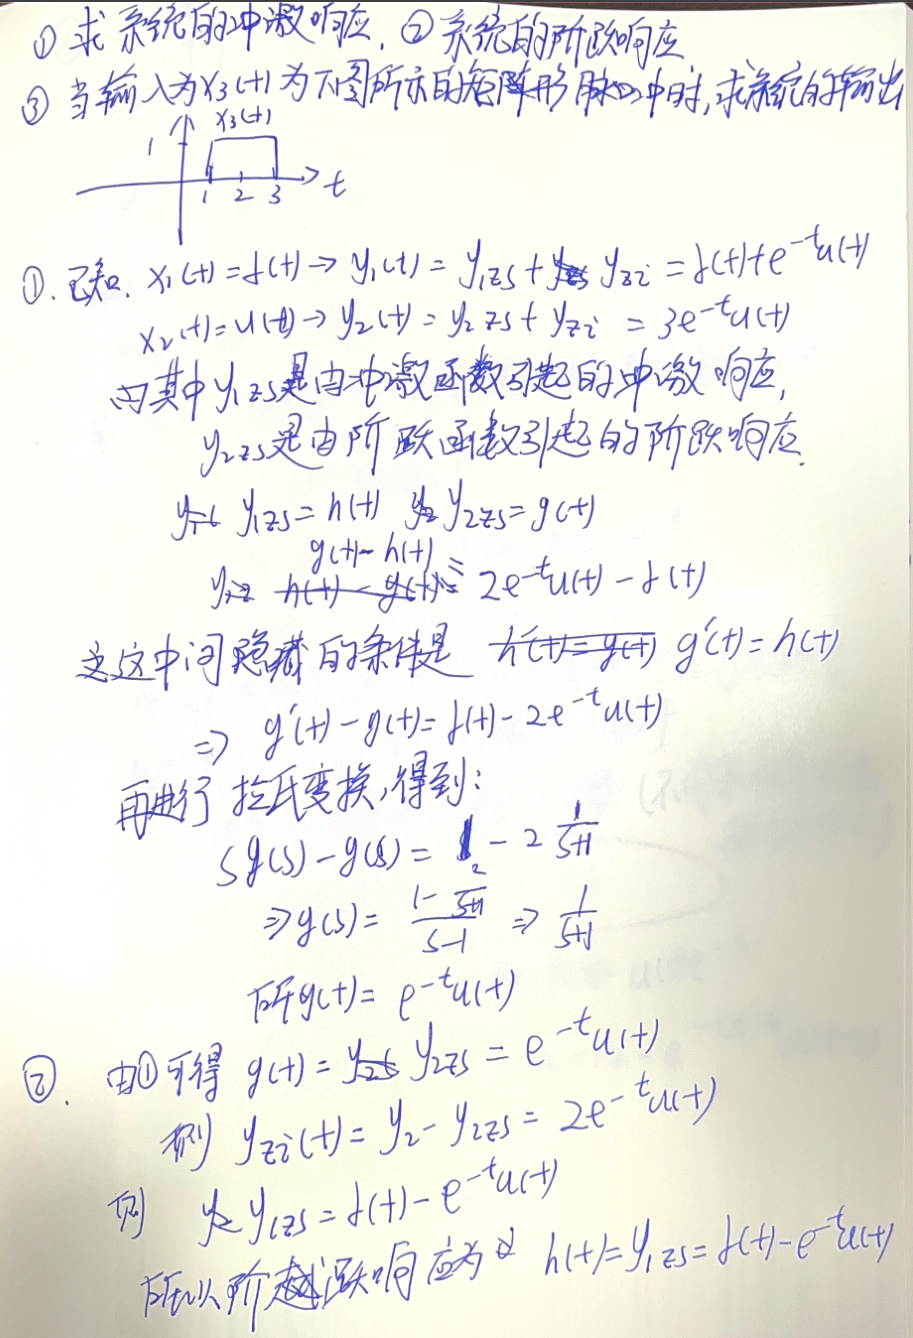 ① 求系统的冲激响应. ② 系统的阶跃响应
③ 当输入为x₃(t)为下图所示的矩形脉冲时,求系统的输出
x₃(t)
1
1 2 3 t
①. 已知. x₁(t)=δ(t)→y₁(t)=y₁zs+yzi=δ(t)+e^{-t}u(t)
x₂(t)=u(t)→y₂(t)=y₂zs+yzi=3e^{-t}u(t)
其中y₁zs是由冲激函数引起的冲激响应,
y₂zs是由阶跃函数引起的阶跃响应.
y₁zs=h(t) y₂zs=g(t)
g(t)-h(t)=2e^{-t}u(t)-δ(t)
这中间隐藏的条件是 g'(t)=h(t)
⇒ g'(t)-g(t)=δ(t)-2e^{-t}u(t)
再进行拉氏变换,得到:
sg(s)-g(s)=1-2 1/(s+1)
⇒g(s)= (1-2/(s+1))/(s-1) ⇒ 1/(s+1)
所g(t)=e^{-t}u(t)
②. 由①可得 g(t)=y₂zs=e^{-t}u(t)
则 yzi(t)=y₂-y₂zs=2e^{-t}u(t)
则 y₁zs=δ(t)-e^{-t}u(t)
所以阶跃响应为 h(t)=y₁zs=δ(t)-e^{-t}u(t)